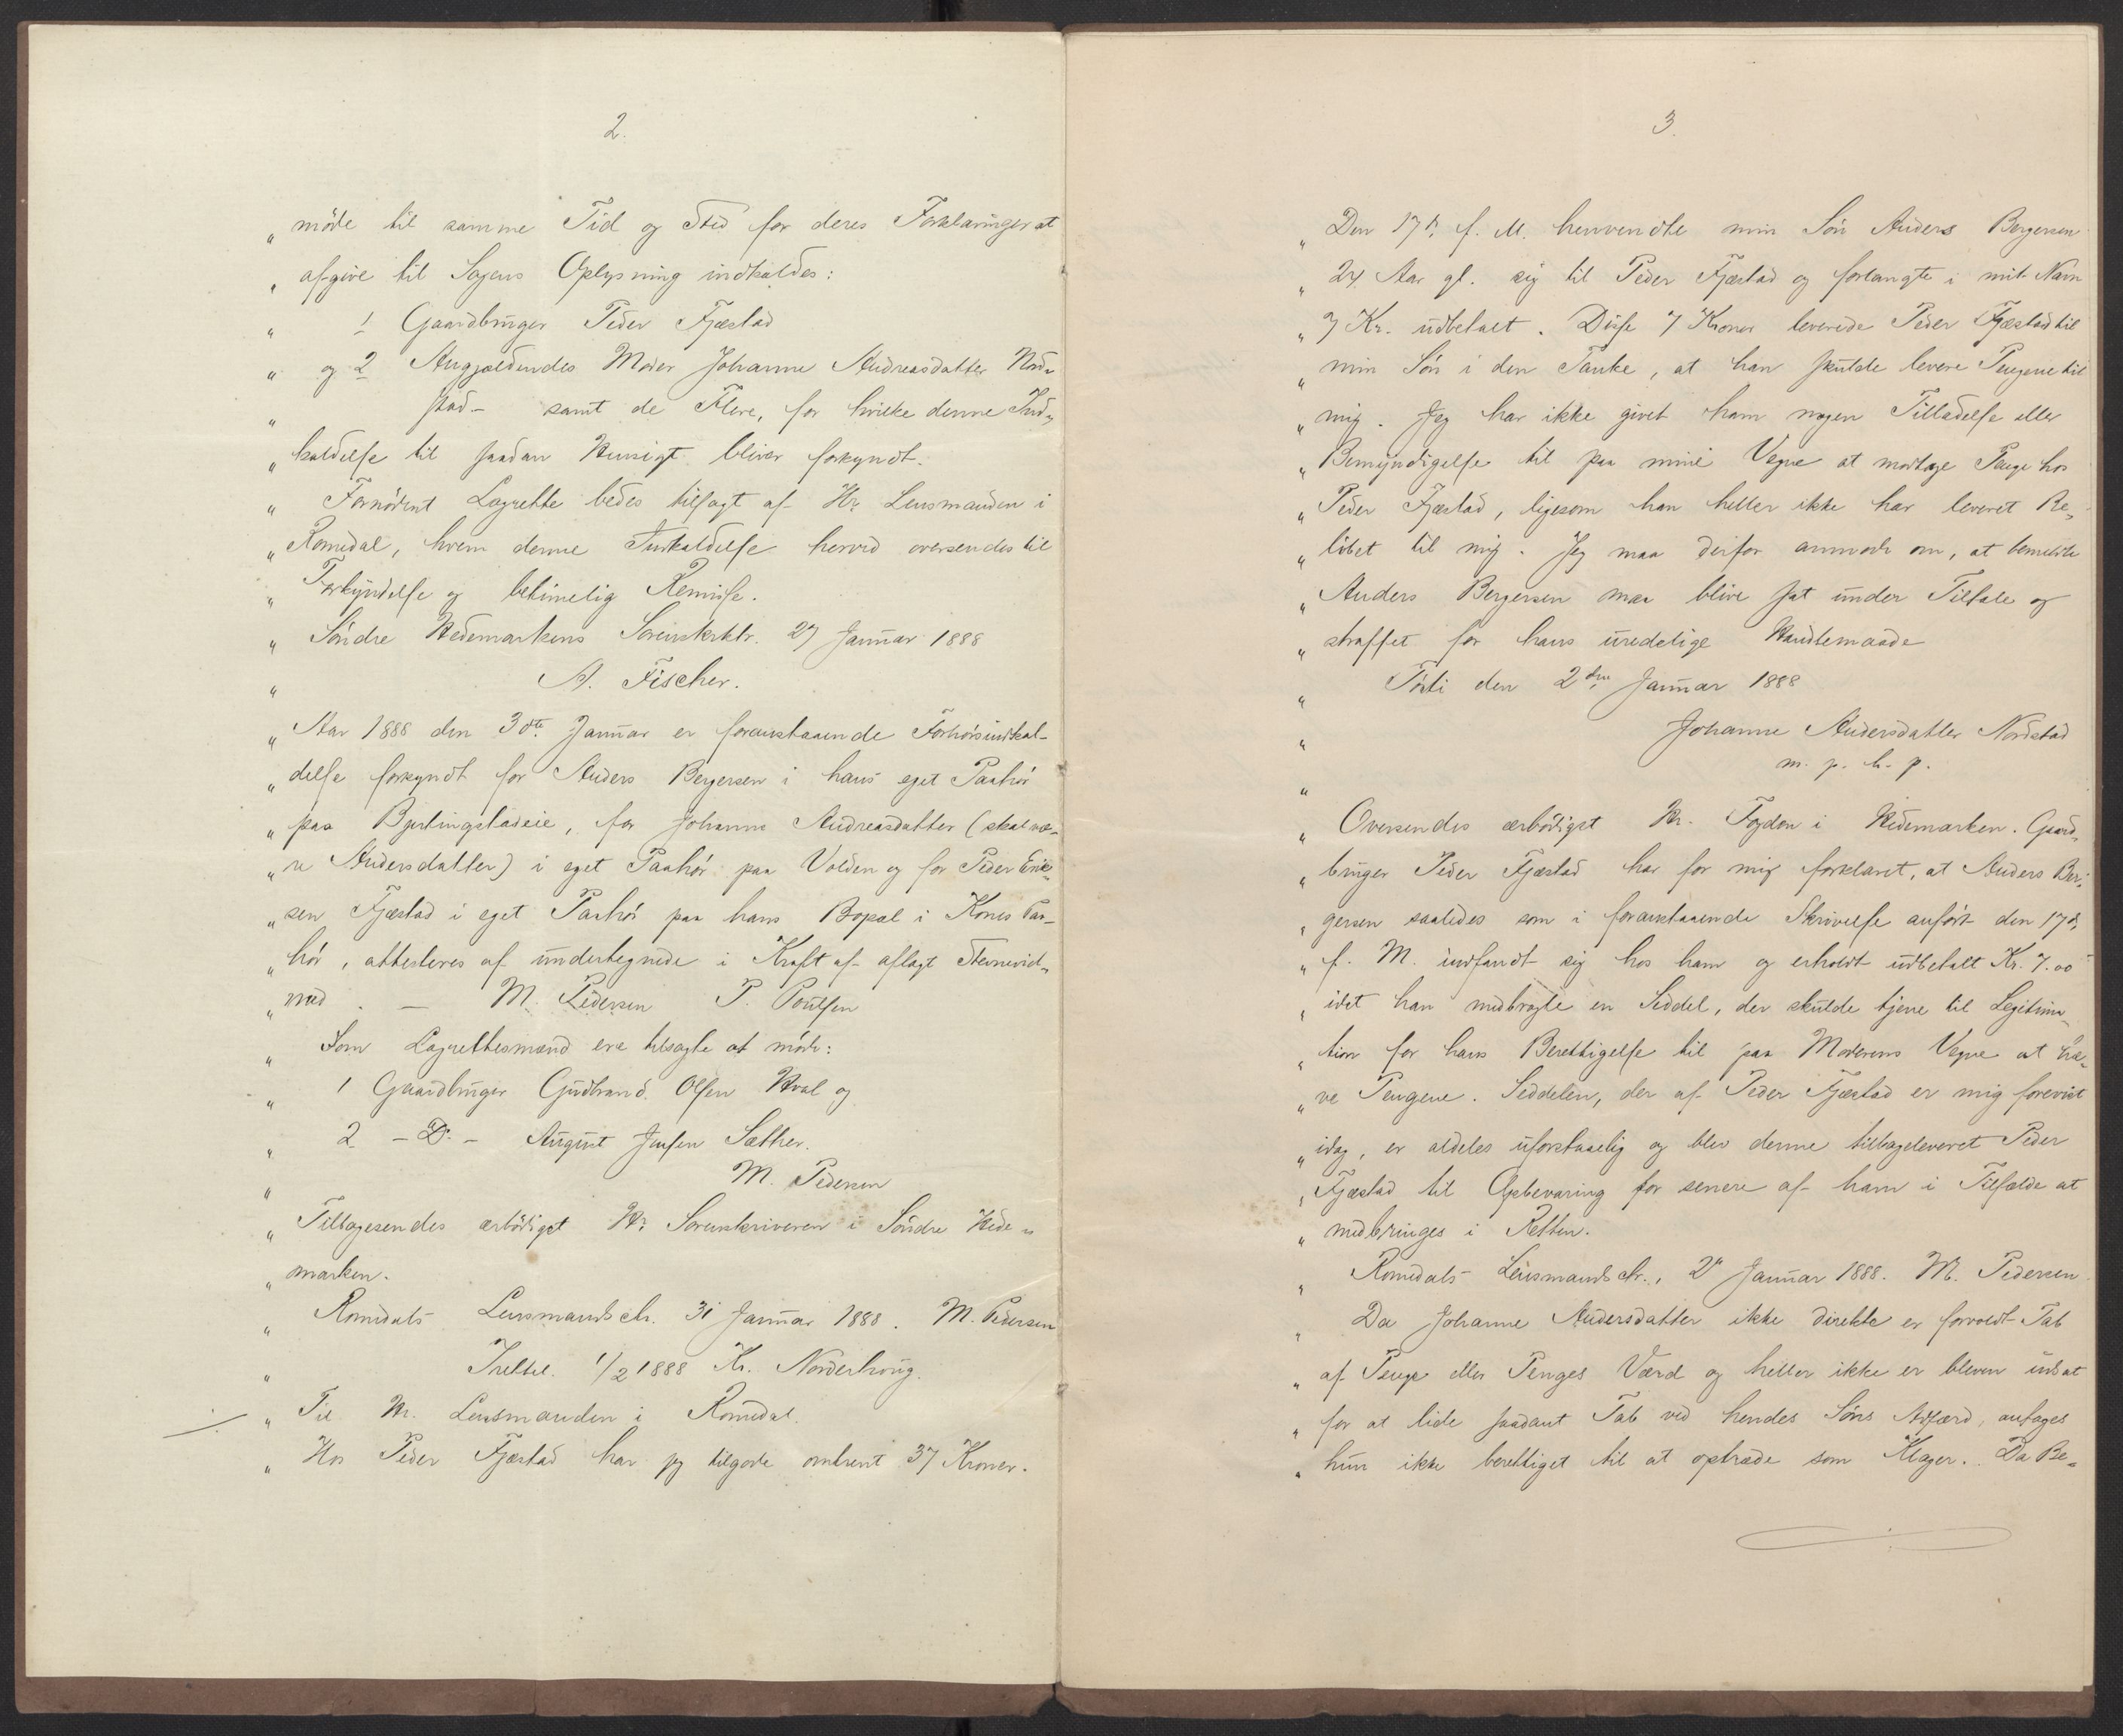 2.
„ möde til samme Tid og Sted for deres Forklaringer at
„ afgive til Sagens Oplysning indkaldes:
„ 1 Gaardbruger Peder Fjæstad
„ og 2 Angjældendes Moder Johanne Andreasdatter Nord„
„ stad - samt de Flere, for hvilke denne Ind„
„ kaldelse til saadan Hensigt bliver forkyndt.
„ Fornödent Lagrette bedes tilsagt af Hr. Lensmanden i
„ Romedal, hvem denne Indkaldelse herved oversendes til
„ Forkyndelse og betimelig Remisse.
„ Söndre Hedemarkens Sorenskrktr. 27 Januar 1888
„ A. Fischer.
„ Aar 1888 den 30te Januar er foranstaaende Forhörsindkal-
„ delse forkyndt for Anders Bergersen i hans eget Paahör
„ paa Bjertingstadeie, for Johanne Andreasdatter (skal væ-
„ re Andersdatter) i eget Paahör paa Volden og for Peder Erik-
„ sen Fjæstad i eget Paahör paa hans Bopæl i Kones Paa-
„ hör, attesteres af undertegnede i Kraft af aflagt Stevnevid„
„ ned. — M. Pedersen P. Poulsen
„ Som Lagrettesmænd ere tilsagte at möde:
„ 1 Gaardbruger Gudbrand Olsen Hval og
„ 2 - Do - August Jensen Sæther.
„ M. Pedersen
„ Tilbagesendes ærbödigst Hr. Sorenskriveren i Söndre Hede„
„ marken.
„ Romedals Lensmandsctr. 31 Januar 1888. M. Pedersen
„ Irettel. 1/2 1888 Kr. Norderhoug.
„ Til Hr. Lensmanden i Romedal.
„ Hos Peder Fjæstad har jeg tilgode omtrent 37 Kroner.
3.
„ Den 17de f. M. henvendte min Sön Anders Bergersen
„ 24 Aar gl. sig til Peder Fjæstad og forlangte i mit Navn
„ 7 Kr. udbetalt. Disse 7 Kroner leverede Peder Fjæstad til
„ min Sön i den Tanke, at han skulde levere Pengene til
„ mig. Jeg har ikke givet ham nogen Tilladelse eller
„ Bemyndigelse til paa mine Vegne at modtage Penge hos
„ Peder Fjæstad, ligesom han heller ikke har leveret Be„
„ löbet til mig. Jeg maa derfor anmode om, at bemeldte
„ Anders Bergersen maa blive sat under Tiltale og
„ straffet for hans uredelige Handlemaade
„ den 2den Januar 1888
„ Johanne Andersdatter Nordstad
„ m. p. h. p.
„ Oversendes ærbödigst Hr. Fogden i Hedemarken. Gaard„
„ bruger Peder Fjæstad har for mig forklaret, at Anders Ber„
„ gersen saaledes som i foranstaaende Skrivelse anfört den 17de
„ f. M. indfandt sig hos ham og erholdt udbetalt Kr. 7.00
„ idet han medbragte en Seddel, der skulde tjene til Legitima„
„ tion for hans Berettigelse til paa Moderens Vegne at hæ„
„ ve Pengene. Seddelen, der af Peder Fjæstad er mig forevist
„ idag, er aldeles uforstaaelig og blev denne tilbageleveret Peder
„ Fjæstad til Opbevaring for senere af ham i Tilfælde at
„ medbringes i Retten.
„ Romedals Lensmandsctr., 2 Januar 1888. M. Pedersen.
„ Da Johanne Andersdatter ikke direkte er forvoldt Tab
„ af Penge eller Penges Værd og heller ikke er bleven udsat
„ for at lide saadant Tab ved hendes Söns Adfærd, antages
„ hun ikke berettiget til at optræde som Klager. Da Be„